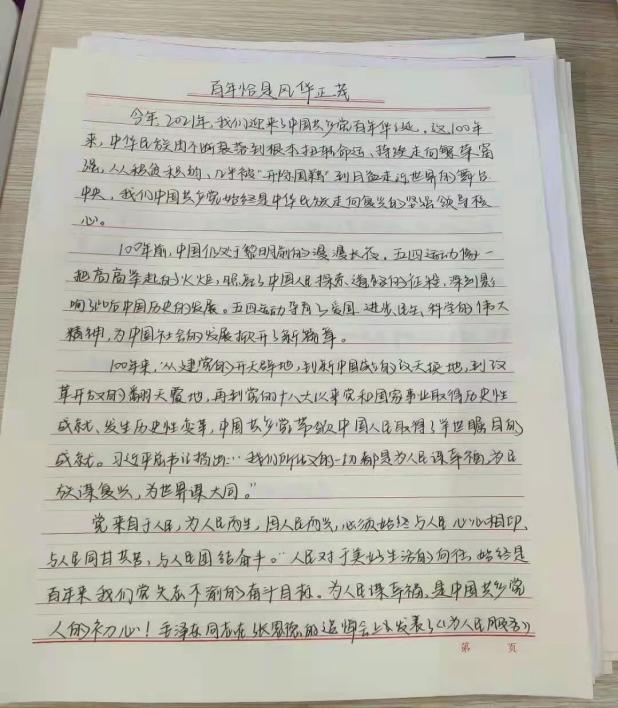 百年恰是风华正茂
今年,2021年,我们迎来了中国共产党百年华诞。这100年
来,中华民族由不断衰落到根本扭转命运、持续走向繁荣富
强,从积贫积弱、几乎被"开除国籍"到日益走近世界的舞台
中央,我们中国共产党始终是中华民族走向复兴的坚强领导核
心。
100年前,中国仍处于黎明前的漫漫长夜,五四运动像一
把高高举起的火炬,照亮了中国人民探索道路的征程,深刻影
响了以后中国历史的发展。五四运动孕育了爱国、进步、民主、科学的伟大
精神,为中国社会的发展掀开了新篇章。
100年来,从建党的开天辟地,到新中国成立的改天换地,到改
革开放的翻天覆地,再到党的十八大以来党和国家事业取得历史性
成就、发生历史性变革,中国共产党带领中国人民取得了举世瞩目的
成就。习近平总书记指出:"我们所做的一切都是为人民谋幸福,为民
族谋复兴,为世界谋大同。"
党来自于人民,为人民而生,因人民而兴,必须始终与人民心心相印、
与人民同甘共苦、与人民团结奋斗。"人民对于美好生活的向往,始终是
百年来我们党矢志不渝的奋斗目标。为人民谋幸福,是中国共产党
人的初心!毛泽东同志在张思德的追悼会上发表了《为人民服务》
第 页